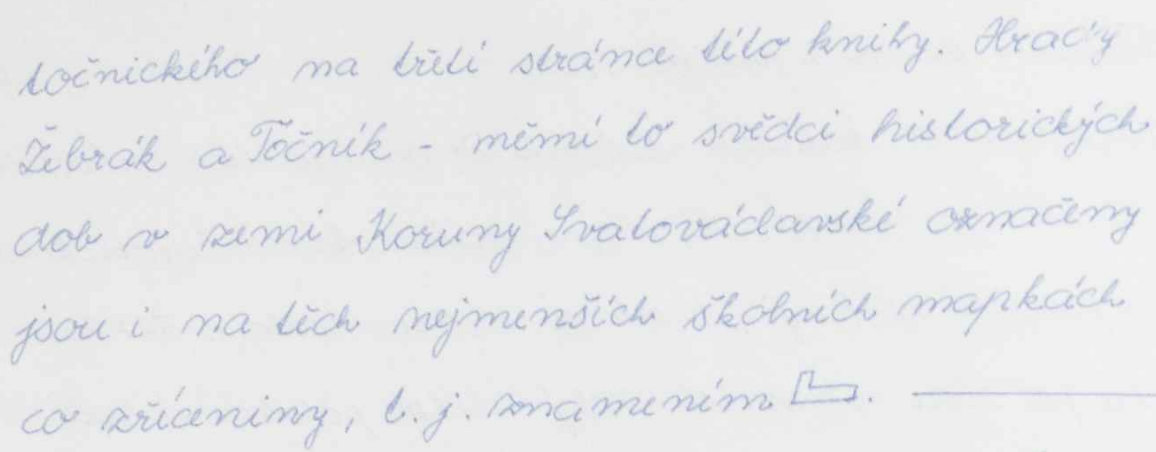 točnického na třetí stránce této knihy. Hrady
Žebrák a Točník - němí to svědci historických
dob v zemi Koruny Svatováclavské označeny
jsou i na těch nejmenších školních mapkách
co zříceniny, t.j. znamením